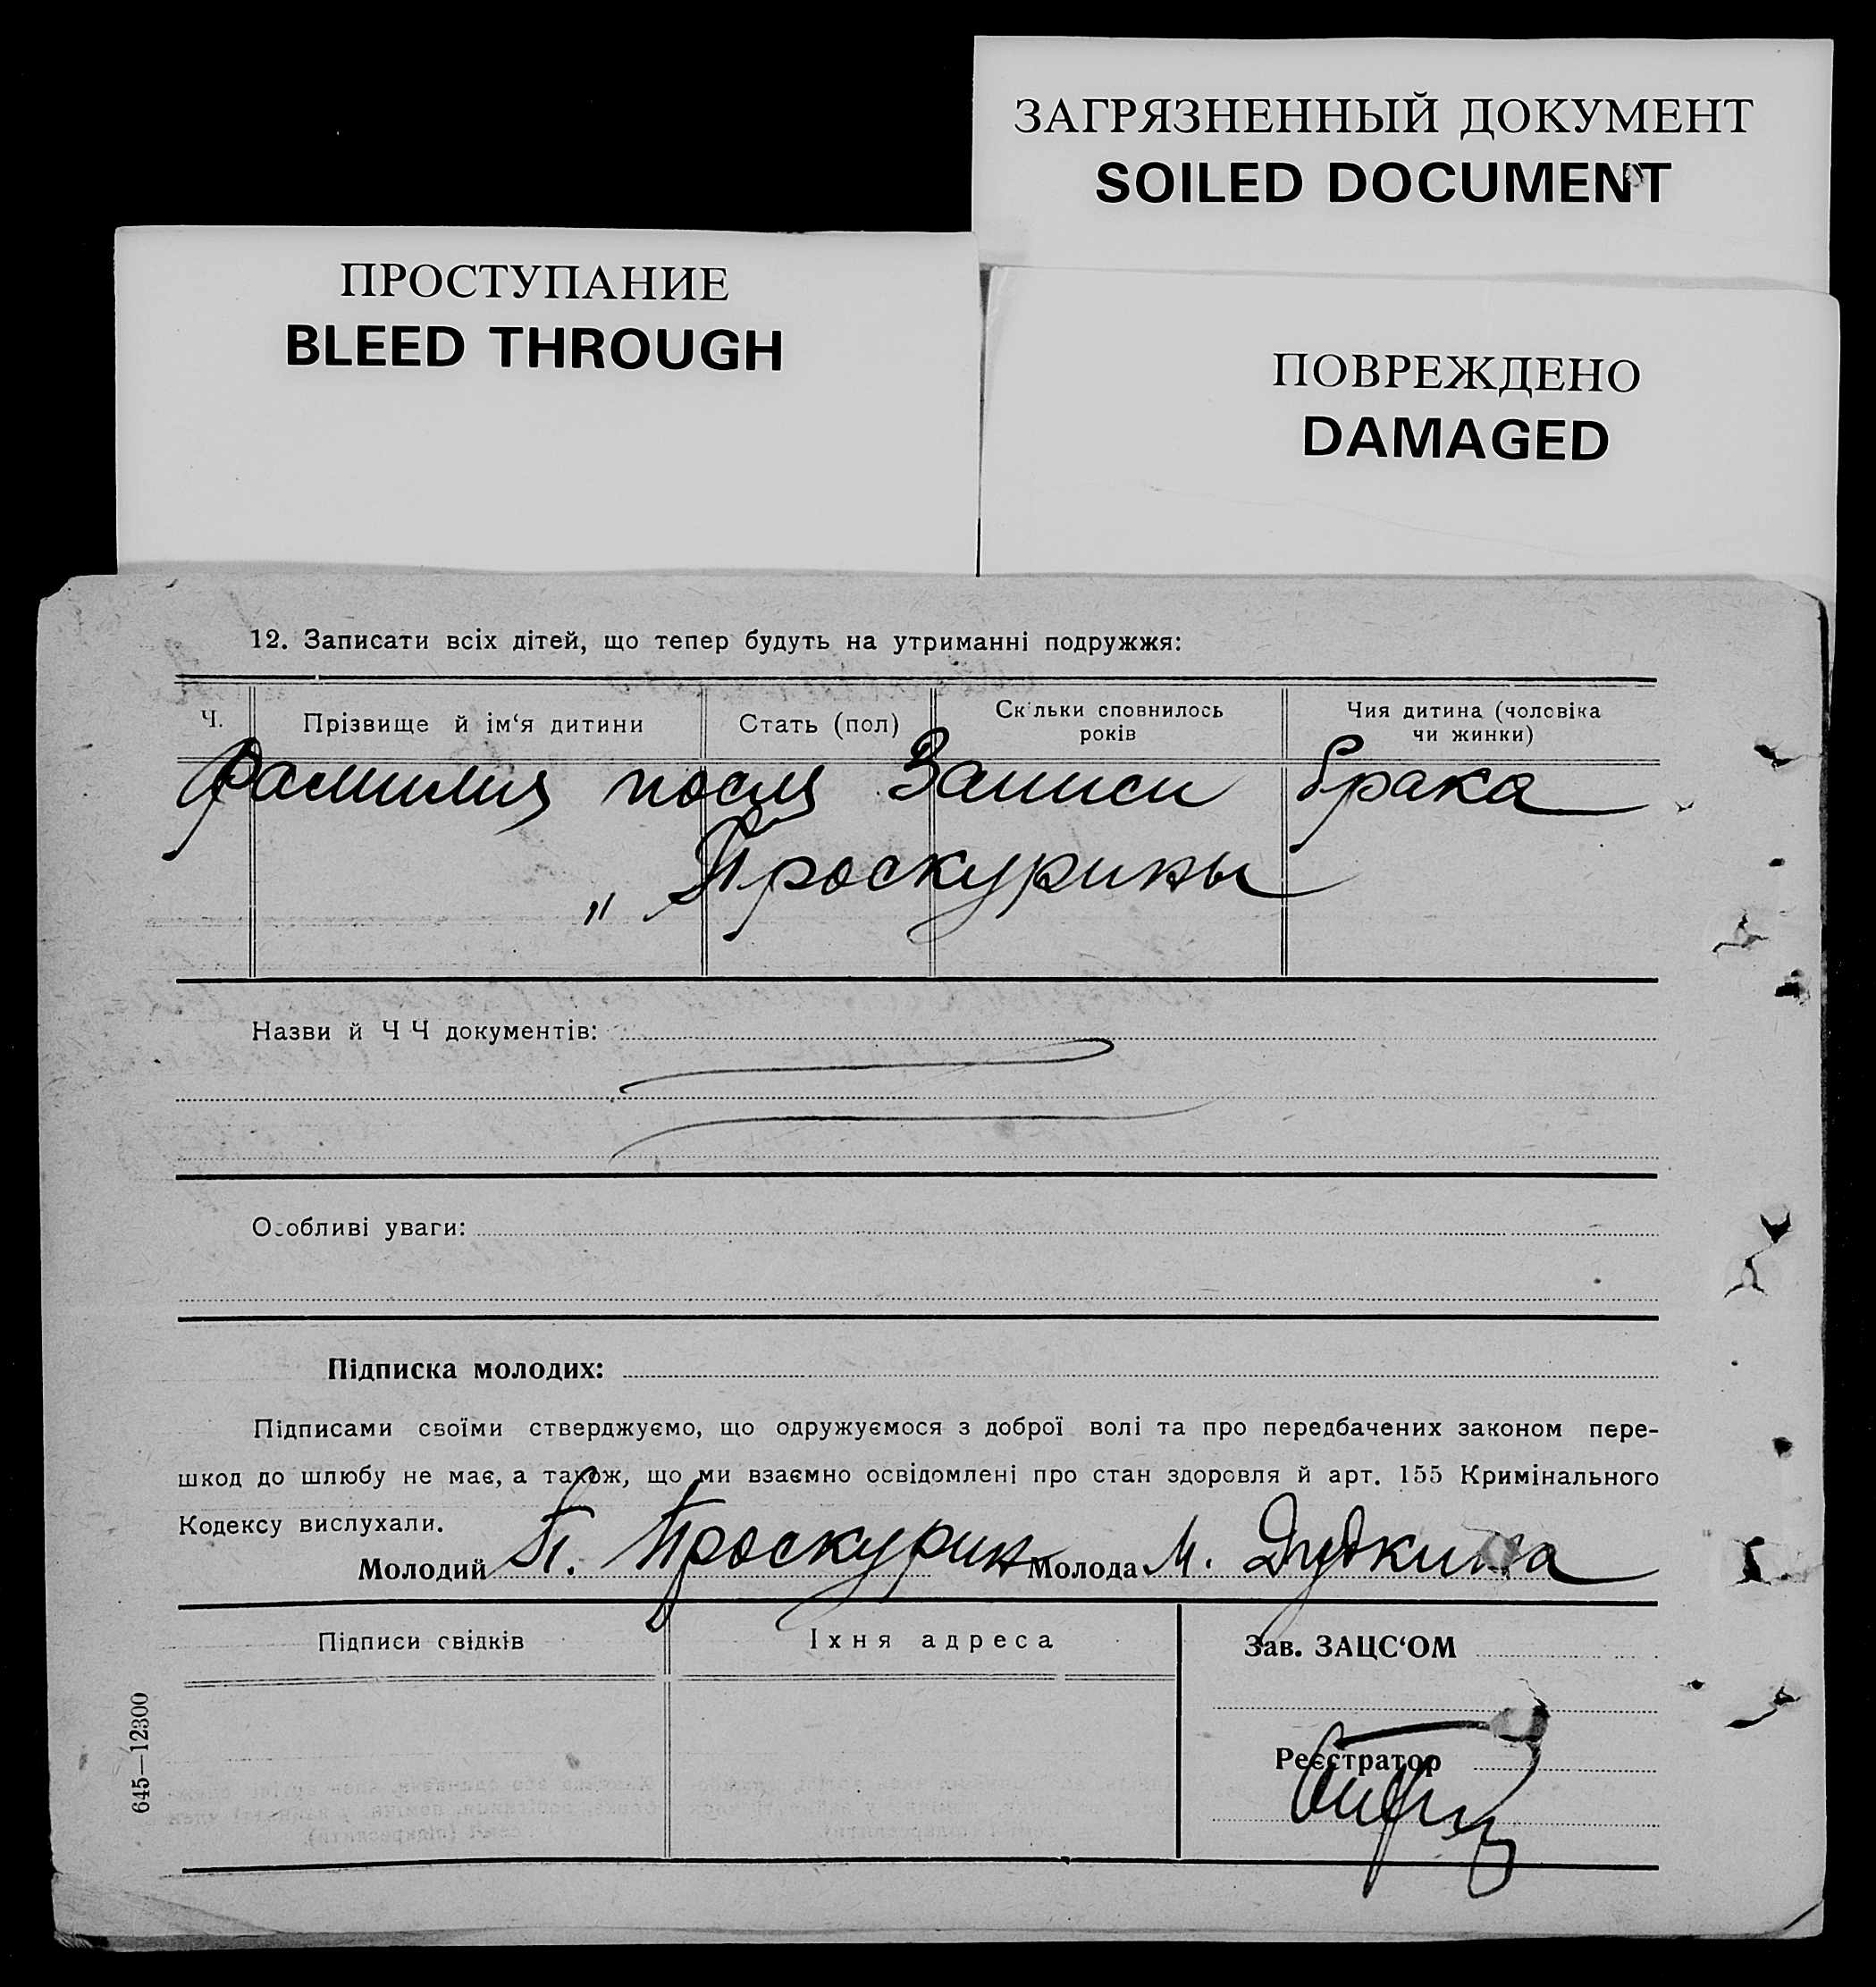 ЗАГРЯЗНЕННЫЙ ДОКУМЕНТ
SOILED DOCUMENT
ПРОСТУПАНИЕ
BLEED THROUGH
ПОВРЕЖДЕНО
DAMAGED
12. Записати всіх дітей, що тепер будуть на утриманні подружжя:
Ч.
Прізвище й ім‘я дитини
Стать (пол)
Скільки сповнилось
років
Чия дитина (чоловіка
чи жинки)
Фамилия после Записи брака
„ Проскурины
Назви й Ч Ч документів:
Особливі уваги:
Підписка молодих:
Підписами своїми стверджуємо, що одружуємося з доброї волі та про передбачених законом пере-
шкод до шлюбу не має, а також, що ми взаємно освідомлені про стан здоровля й арт. 155 Кримінального
Кодексу вислухали.
Молодий П. Проскурин Молода М. Дудкина
Підписи свідків
Їхня адреса
Зав. ЗАЦС‘ОМ
Реєстратор
645—12300